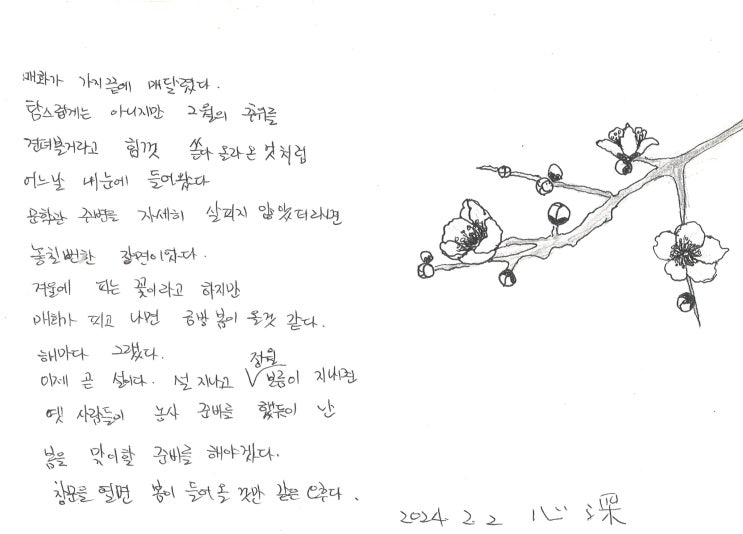 매화가 가지끝에 매달렸다.
탐스럽게는 아니지만 2월의 추위를
견뎌볼거라고 힘껏 솟아 올라온 것처럼
어느날 내눈에 들어왔다
문학관 주변을 자세히 살피지 않았더라면
놓칠뻔한 장면이었다.
겨울에 피는 꽃이라고 하지만
매화가 피고 나면 금방 봄이 올것 같다.
해마다 그랬다.
이제 곧 설이다. 설 지나고 정월 보름이 지나면
옛 사람들이 농사 준비를 했듯이 난
봄을 맞이할 준비를 해야겠다.
창문을 열면 봄이 들어올 것만 같은 오후다.
2024. 2. 2 心